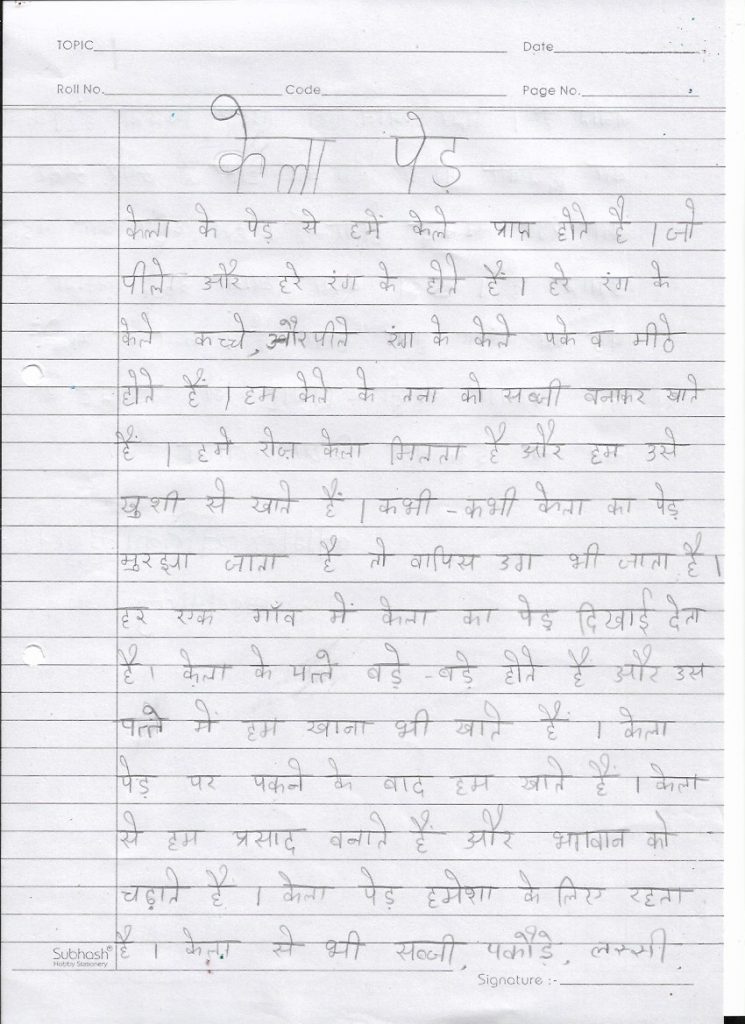 TOPIC Date
Roll No. Code Page No.
केला पेड़
केला के पेड़ से हमें केले प्राप्त होते है । जो
पीले और हरे रंग के होते हैं । हरे रंग के
केले कच्चे, और पीले रंग के केले पके व मीठे
होते हैं । हम केले के तना को सब्जी बनाकर खाते
हैं । हमें रोज़ केला मिलता है और हम उसे
खुशी से खाते हैं । कभी - कभी केला का पेड़
मुरझा जाता है तो वापिस उग भी जाता है ।
हर एक गाँव में केला का पेड़ दिखाई देता
है । केला के पत्ते बड़े - बड़े होते हैं और उस
पत्ते में हम खाना भी खाते हैं । केला
पेड़ पर पकने के बाद हम खाते हैं । केला
से हम प्रसाद बनाते हैं और भगवान को
चढ़ाते हैं । केला पेड़ हमेशा के लिए रहता
है । केला से भी सब्जी, पकौड़े, लस्सी,
Subhash®
Hobby Stationery
Signature :-